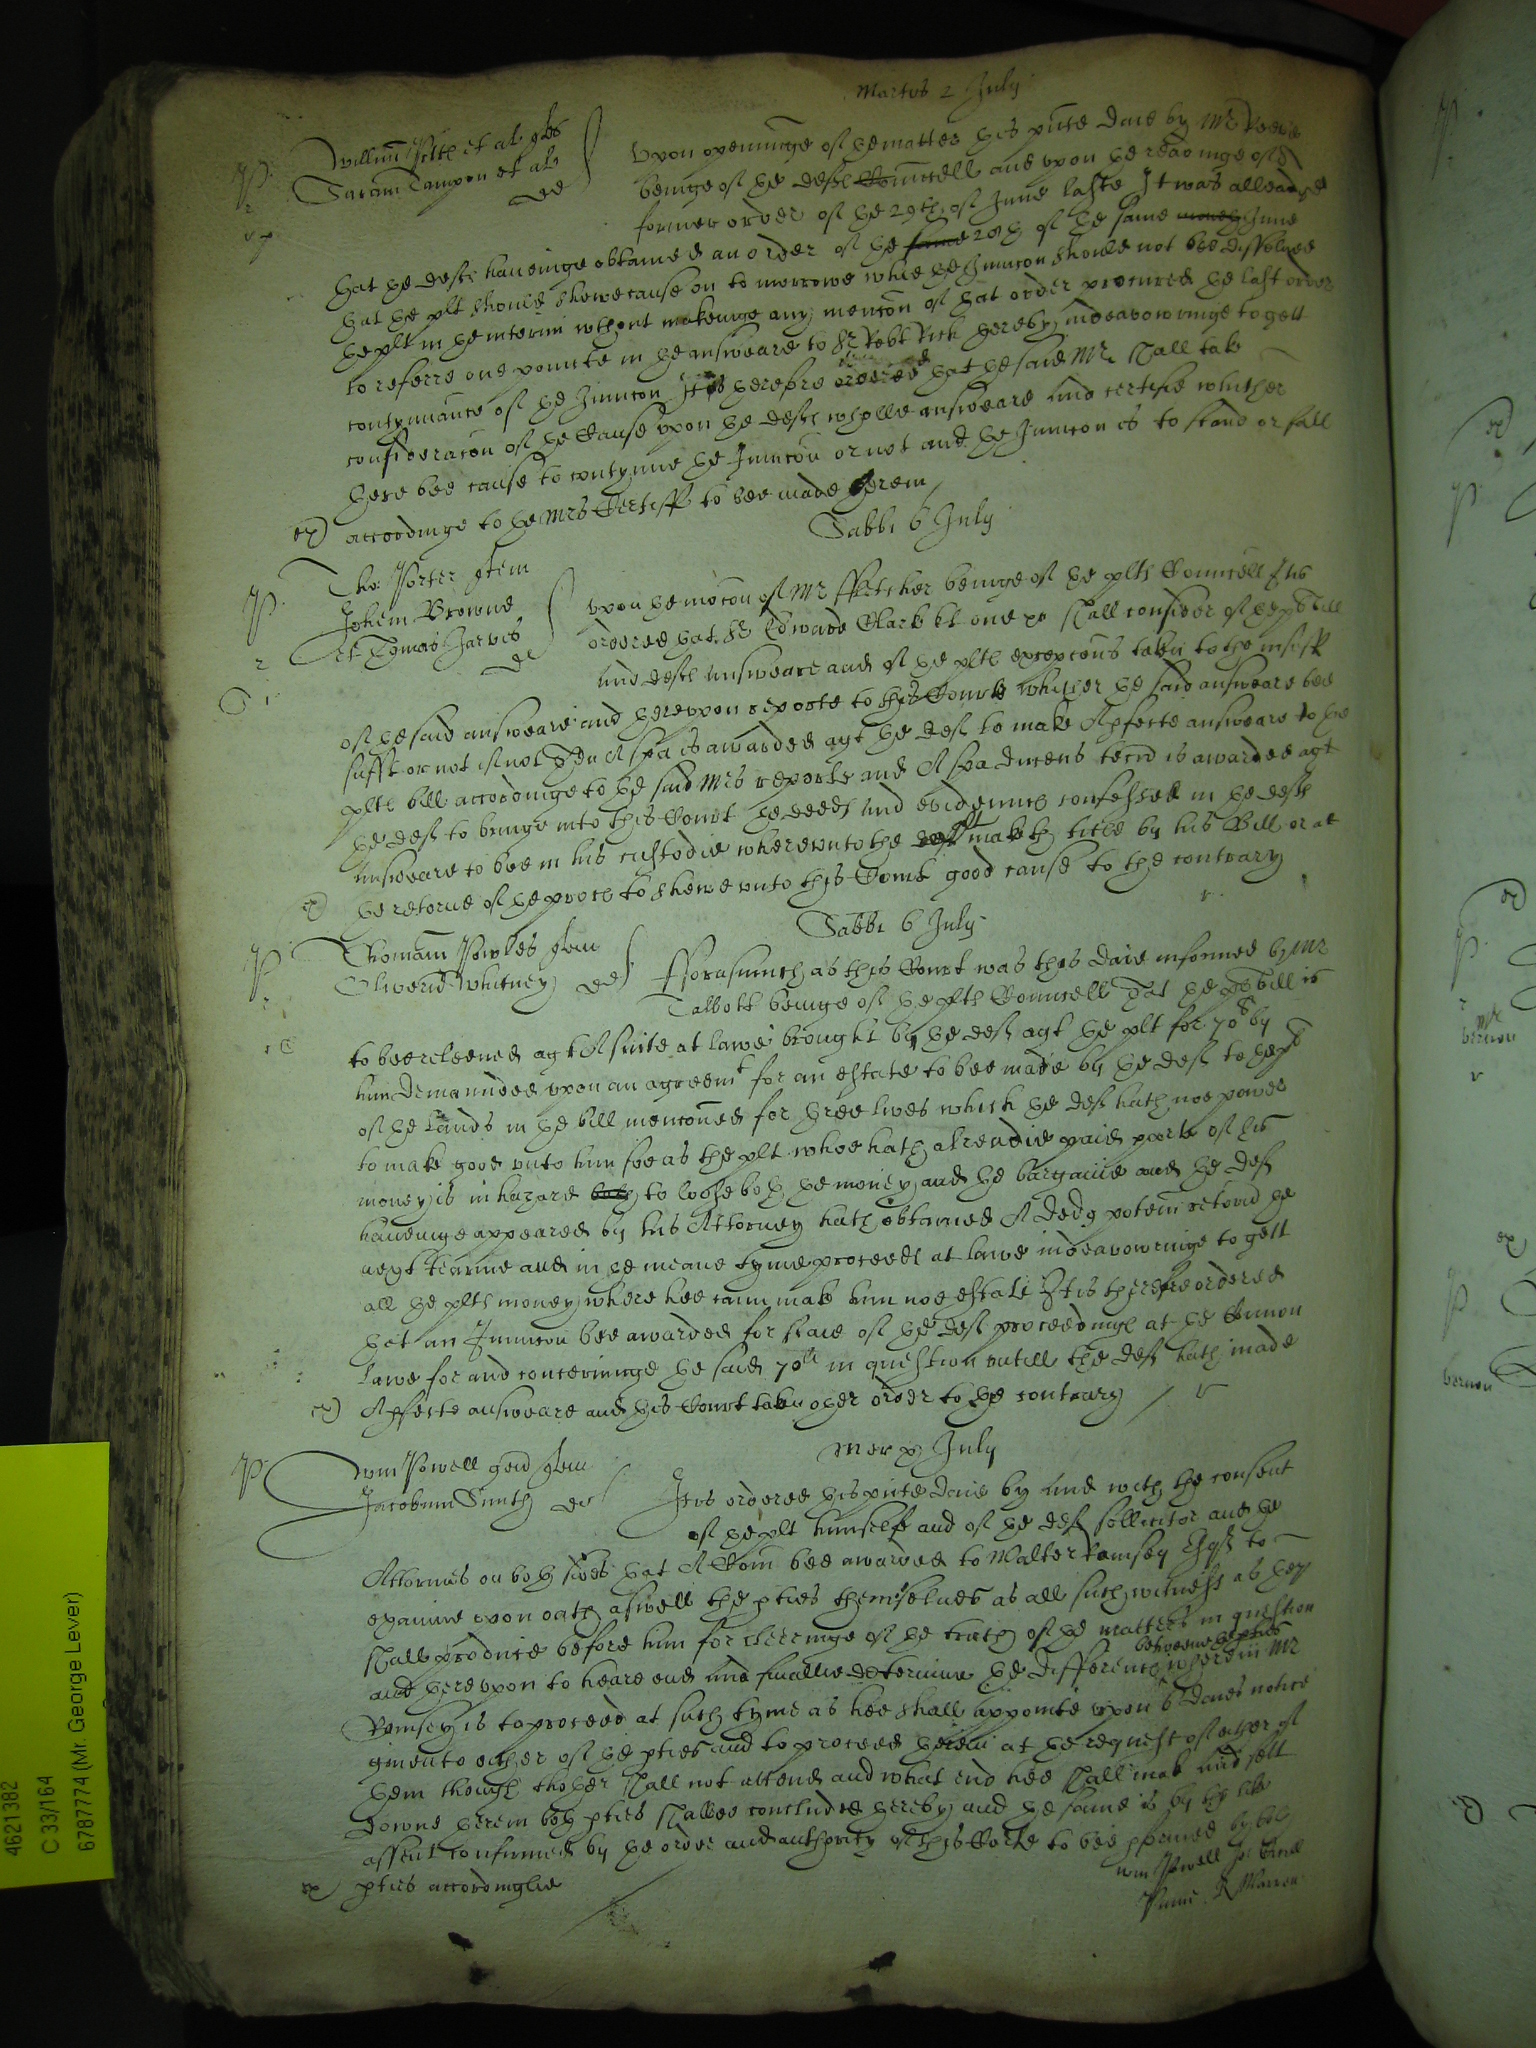 Martis 2 July
Willm et al ples
Saram Sampon et al
de
Upon openinge of the matter this pnte daie by Mr
beinge of the defts Counsell and upon the readinge of
former order of the 29th of June laste It was alleadged
that the deft haveinge obtained an order of the same 28th of the same money June
that the plt should shewe cause on to morrowe while the Iniuncon should not bee dissolved
the plt in the interim wthout makeinge any mencon of that order procured the last order
to referre one pointe in the answeare to Sr Robt Rich thereby indeavouringe to gett
contynuance of the Iniuncon It is therefore ordered that the said Mr shall take
consideracon of the Cause upon the defts wholle answeare and certifie whither
there bee cause to contynue the Iniuncon or not and the Iniuncon is to stand or fall
ex accordinge to the Mrs Certiff to bee made therein
Sabbi 6 July
Tho: Porter plem
Johem Browne
et Thomas Jarvis
de
Upon the mocon of Mr ffletcher beinge of the plts Counsell It is
ordered that Sr Edward Clark kt one &c shall consider of the pls Bill
and defts answeare and of the plts excepcons taken to the insuff
of the said answeare and thereupon reporte to this Courte whither the said answeare bee
sufft or not if not then A spa is awarded agt the deft to make A pfecte answeare to the
plts bill accordinge to the said Mrs reporte and A spa ducens tecu is awarded agt
the deft to bringe into this Court the deeds and evidences confessed in the defts
answeare to bee in his custodie whereunto the deft plt maketh title by his Bill or at
ex the retorne of the proces to shewe unto this Court good cause to the contrary
Sabbi 6 July
Thomam Powles plem
Oliverū Whitney de
Fforasmuch as this Court was this daie informed by Mr
Talbott beinge of the plts Counsell That the pls bill is
to bee releeved agt A suite at lawe brought by the deft agt the plt for 70li by
him demaunded upon an agreemt for an estate to bee made by the deft to the plt
of the Lands in the bill mencōned for three lives which the deft hath noe power
to make good unto him soe as the plt whoe hath alreadie paid parte of his
money is in hazard to loose both the money and the bargaine and the deft
haveinge appeared by his Attorney hath obtained A ded potem retornd the
next tearme and in the meane tyme proceeds at lawe indeavouringe to gett
all the plts money where hee cann make him noe estate It is therefore ordered
that an Iniuncon bee awarded for staie of the defts proceedings at the Comon
Lawe for and concerninge the said 70li in question untill the deft hath made
ex A pfecte answeare and this Court taken other order to the contrary
Mer x July
Wm Powell gen plem
Jacobum Smith de
It is ordered this pnte daie by and with the consent
of the plt himself and of the defts sollicitor and the
Attornies on both sides that A Com bee awarded to Walter Ramsey Esqr to
examine upon oath aswell the pties themselves as all such witness as they
shall produce before him for cleeringe of the truth of the matters in question
and thereupon to heare end and finallie determine the differencs betweene the pties wherein Mr
Ramsey is to proceed at such tyme as hee shall appointe upon 6 daies notice
given to either of the pties and to proceed therein at the request of either of
them though thother shall not attend and what end hee shall make and sett
downe therein both pties shalbee concluded thereby and the same is by the like
assent confirmed by the order and authority of this Corte to bee pformed by both
ex pties accordinglie
Wm Powell
4621382
C 33/164
6787774 (Mr. George Lever)